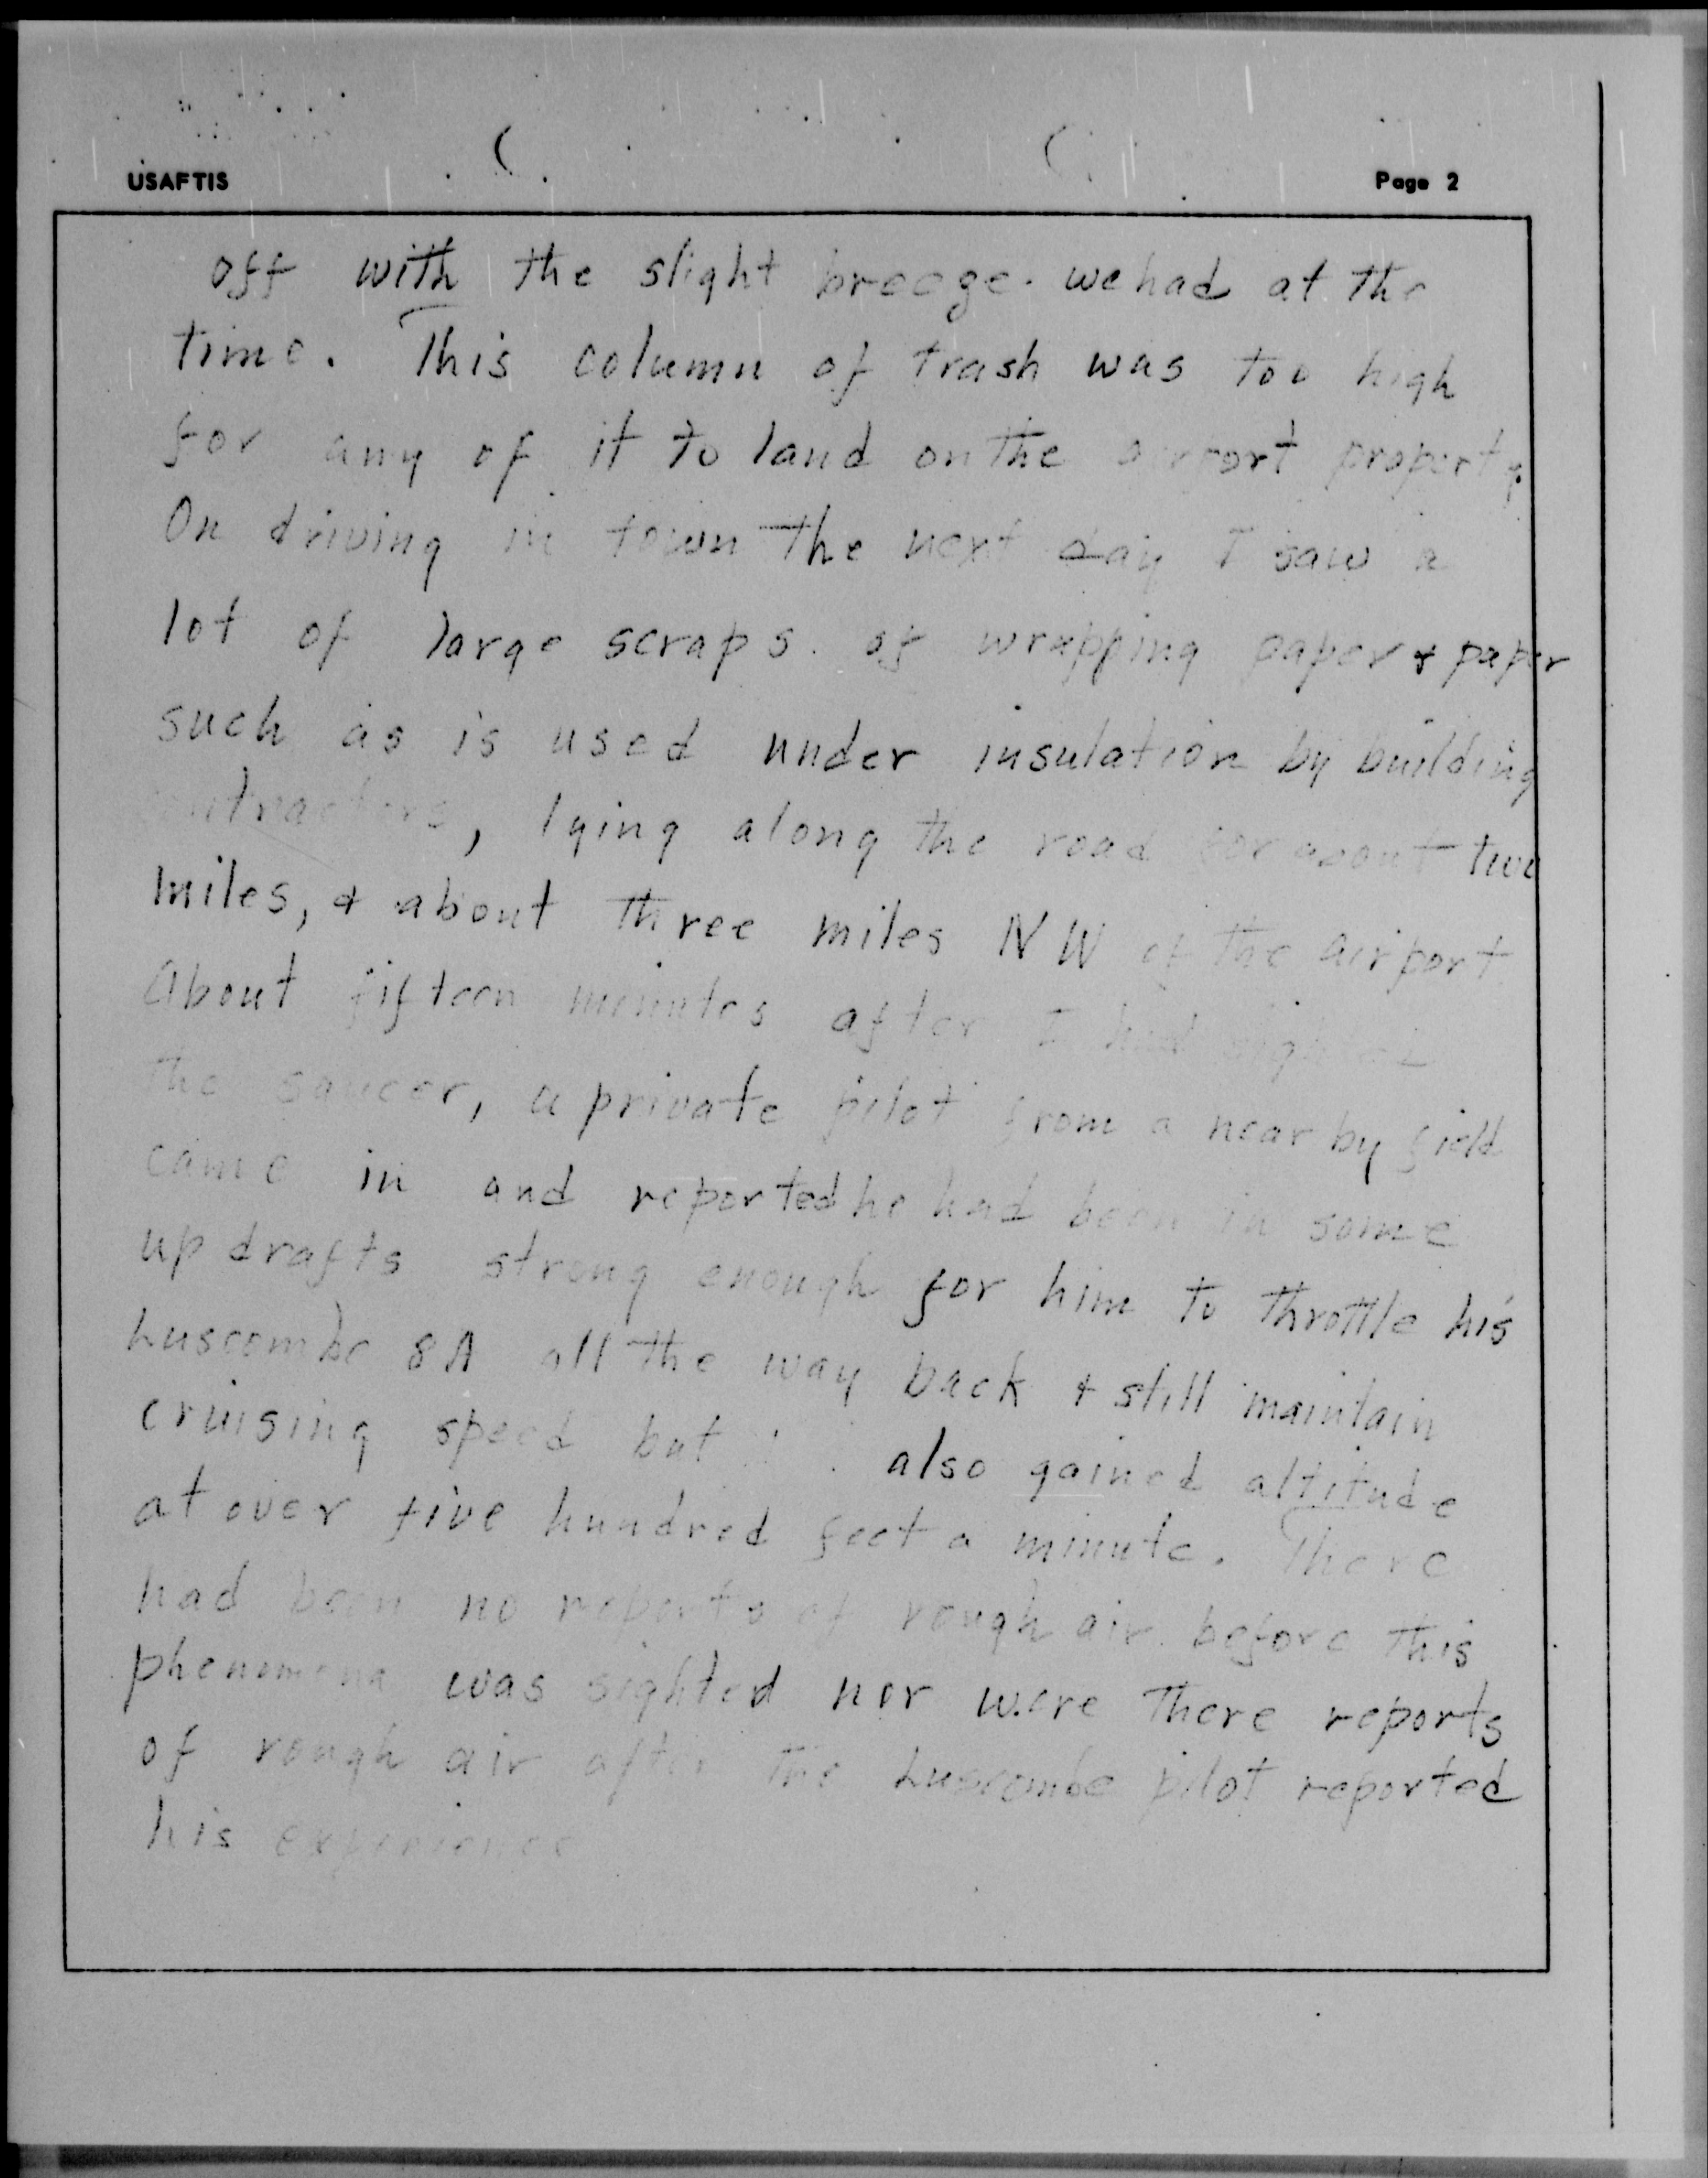 USAFTIS Page 2
off with the slight breeze. we had at the
time. This column of trash was too high
for any of it to land on the airport property.
On driving in town the next day I saw a
lot of large scraps. of wrapping paper & paper
such as is used under insulation by building
contractors, lying along the road for about two
miles, & about three miles NW of the airport.
About fifteen minutes after I had sighted
the saucer, a private pilot from a near by field
came in and reported he had been in some
up drafts strong enough for him to throttle his
Luscombe 8A all the way back & still maintain
cruising speed but also gained altitude
at over five hundred feet a minute. There
had been no reports of rough air before this
phenomena was sighted nor were there reports
of rough air after the Luscombe pilot reported
his experience